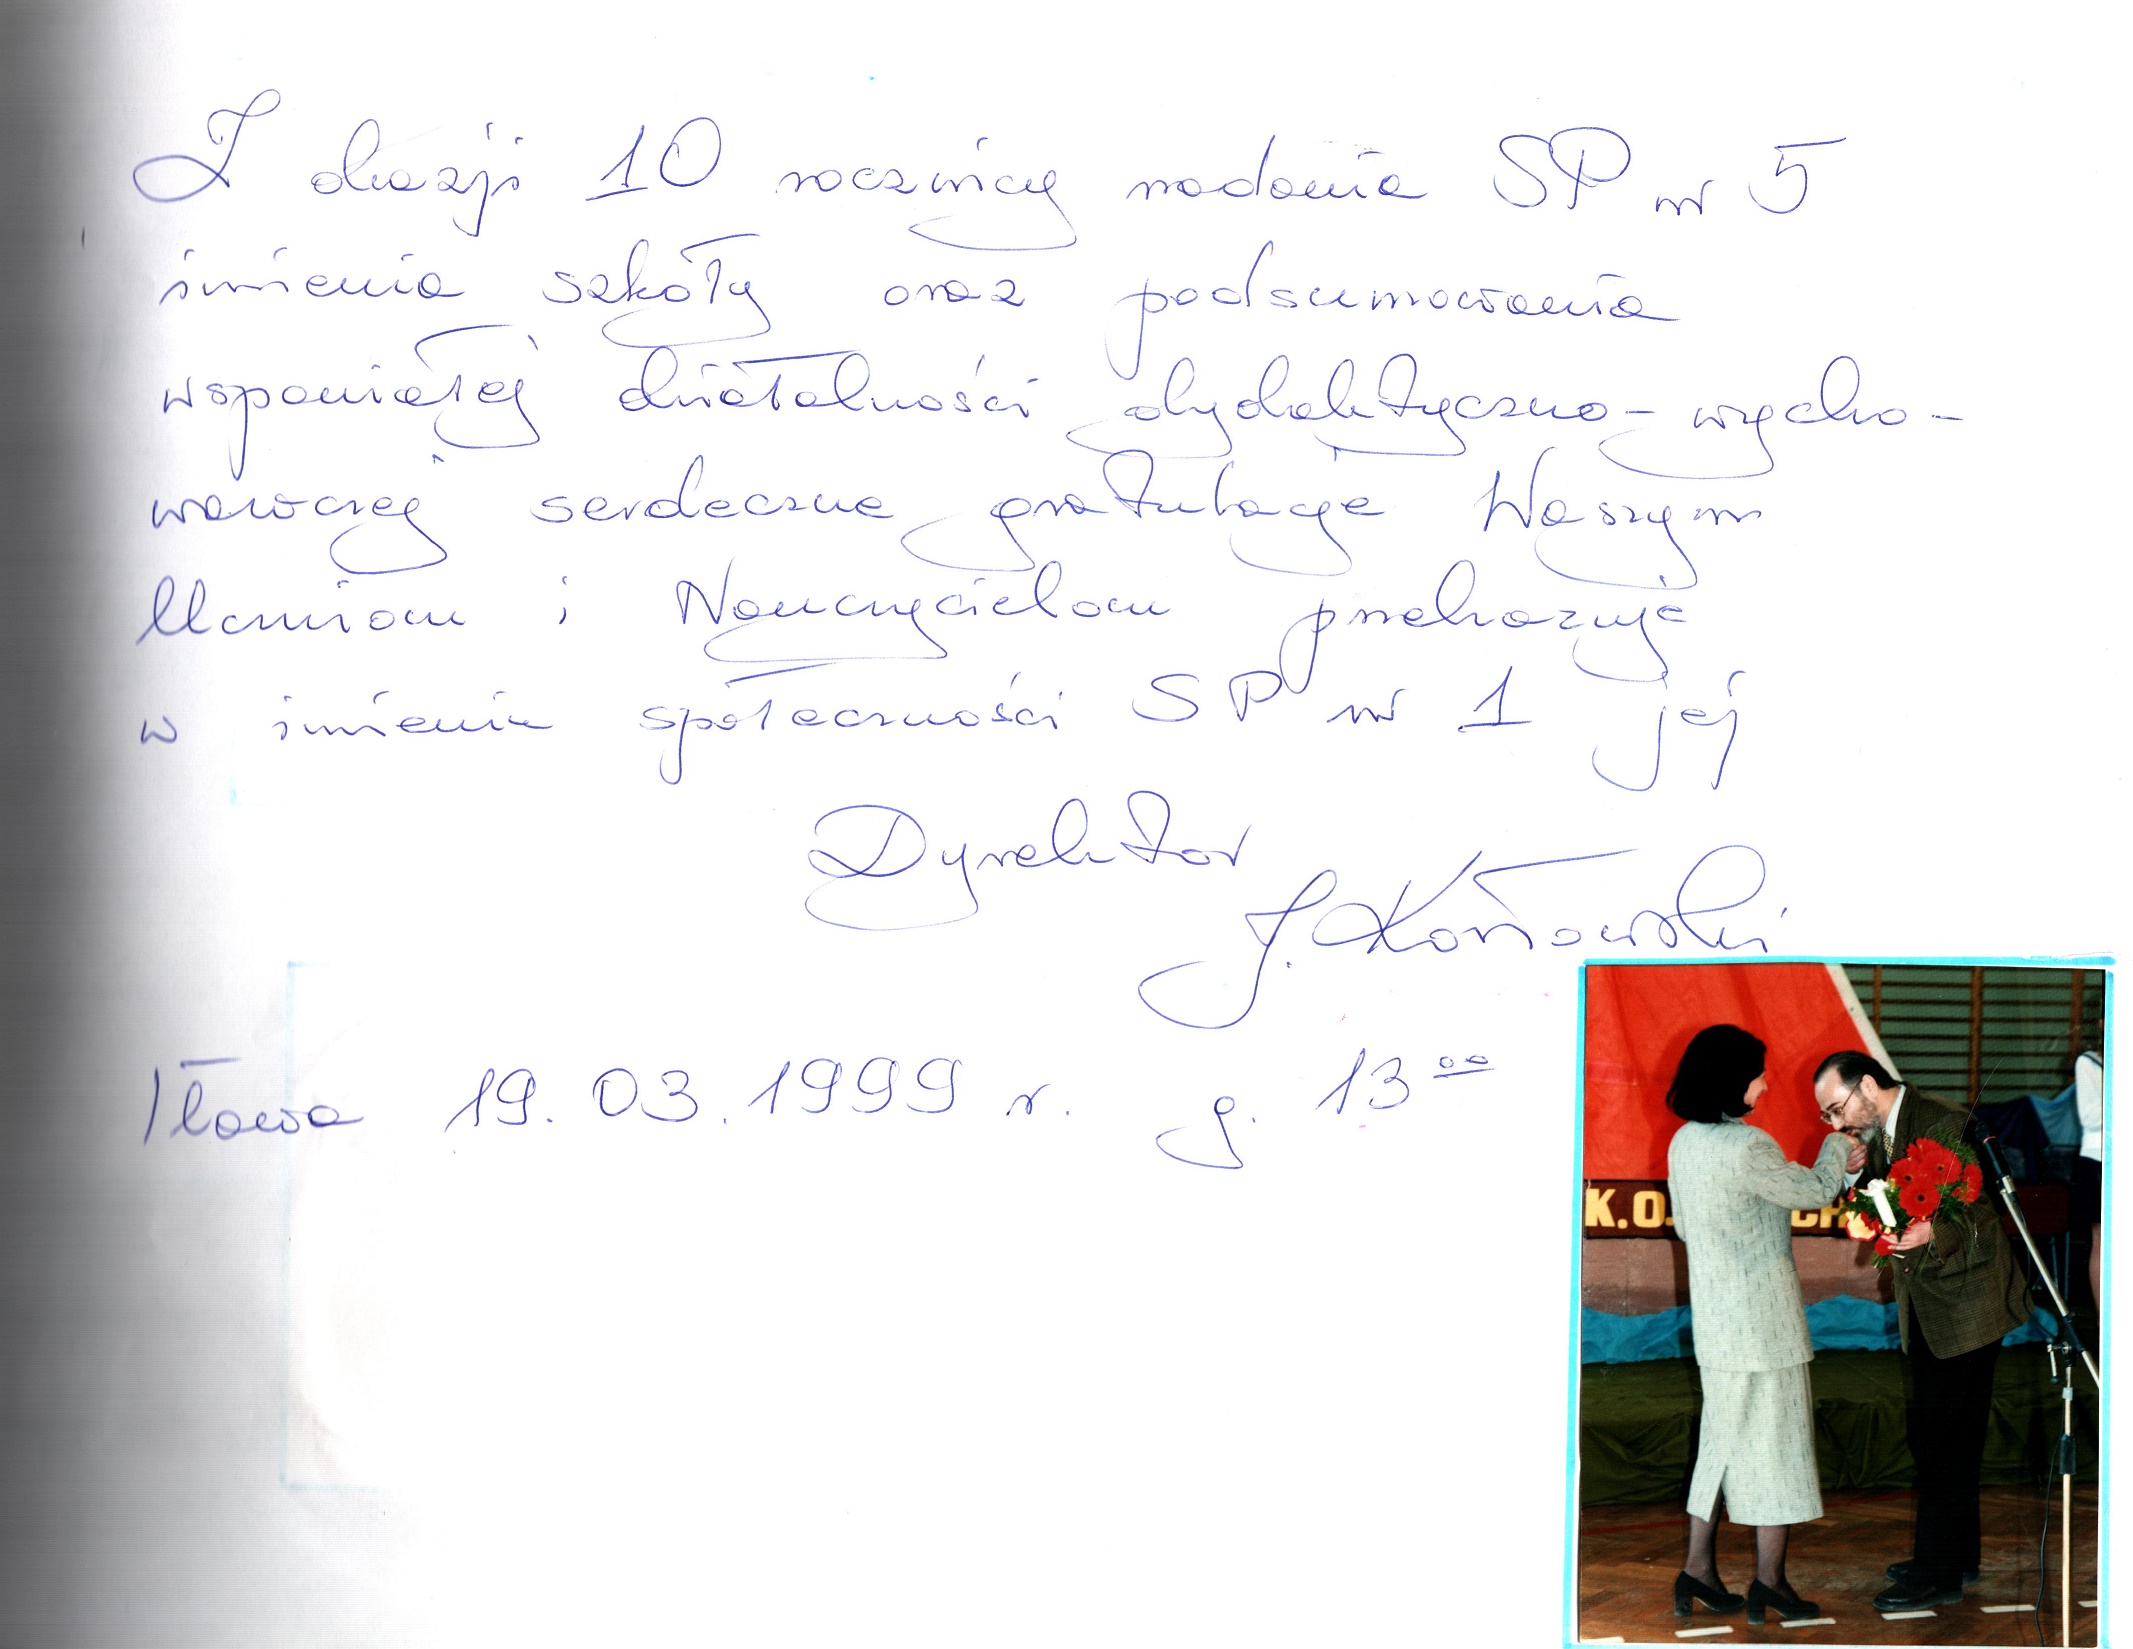 Z okazji 10 rocznicy nadania SP nr 5
imienia szkoły oraz podsumowania
wspaniałej działalności dydaktyczno-wycho-
wawczej serdeczne gratulacje Waszym
Uczniom i Nauczycielom przekazuje
w imieniu społeczności SP nr 1 jej
Dyrektor
J. Kottowski
Iława 19.03.1999 r. g. 13⁰⁰
K.O.